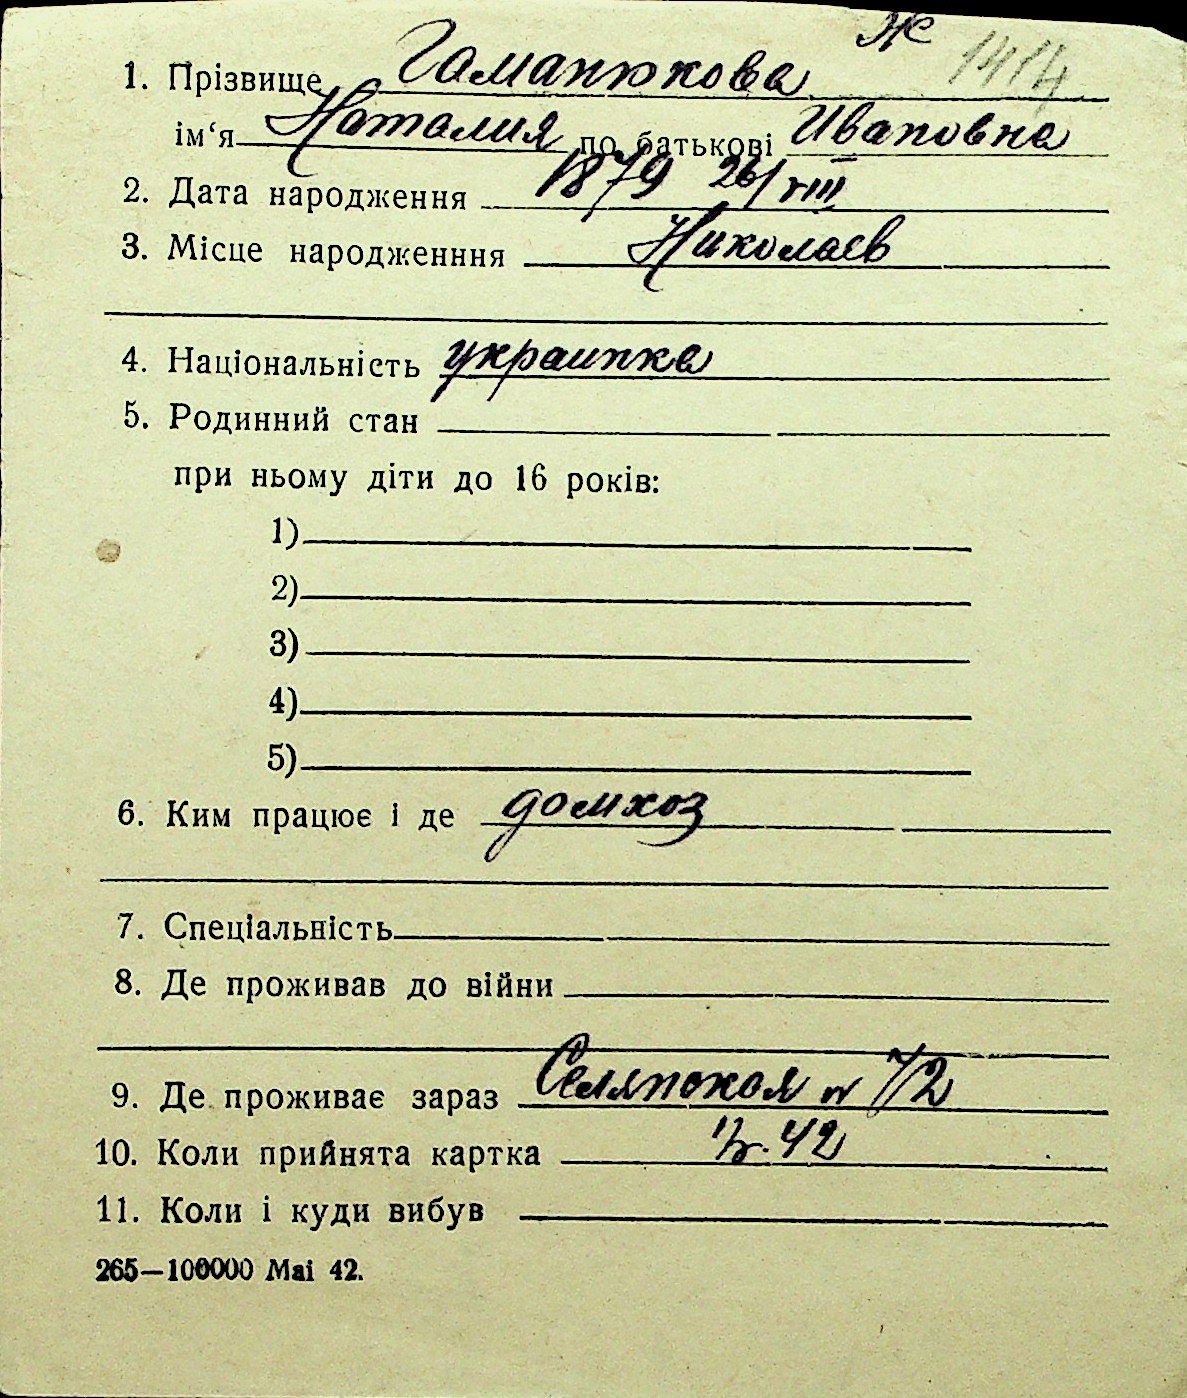 Ж 1414
1. Прізвище Гаманюкова
ім‘я Наталия по батькові Ивановна
2. Дата народження 1879 26/VIII
3. Місце народженння Николаев
4. Національність украинка
5. Родинний стан
при ньому діти до 16 років:
1)
2)
3)
4)
5)
6. Ким працює і де домхоз
7. Спеціальність
8. Де проживав до війни
9. Де проживає зараз Селянская N 72
10. Коли прийнята картка 42
11. Коли і куди вибув
265—100000 Mai 42.